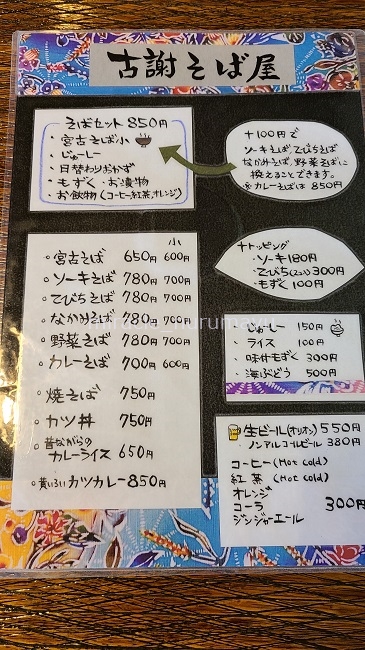 古謝そば屋
そばセット 850円
・宮古そば小
・じゅーしー
・日替わりおかず
・もずく・お漬物
・お飲物(コーヒー,紅茶,オレンジ)
+100円で
ソーキそば,てびちそば
なかみそば,野菜そばに
換えることできます。
※カレーそばは 850円
小
・宮古そば 650円 600円
・ソーキそば 780円 700円
・てびちそば 780円 700円
・なかみそば 780円 700円
・野菜そば 780円 700円
・カレーそば 700円 600円
・焼そば 750円
・カツ丼 750円
・昔ながらの
カレーライス 650円
・黄いろいカツカレー 850円
+トッピング
・ソーキ 180円
・てびち(2コ) 300円
・もずく 100円
・じゅーしー 150円
・ライス 100円
・味付もずく 300円
・海ぶどう 500円
生ビール(オリオン) 550円
ノンアルコールビール 380円
コーヒー(Hot cold)
紅茶 (Hot cold)
オレンジ
コーラ 300円
ジンジャーエール